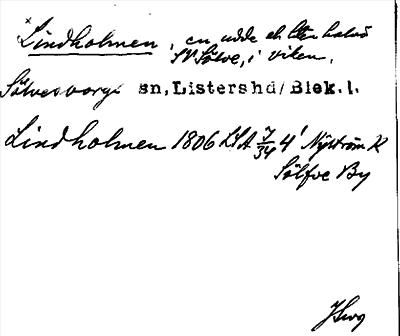 Lindholmen, en udde el. liten halvö
SV Sölve, i viken.
Sölvesborgs sn, Listershd/Blek. l.
Lindholmen 1806 LSA 7/34 4' Nyström K
Sölfve By